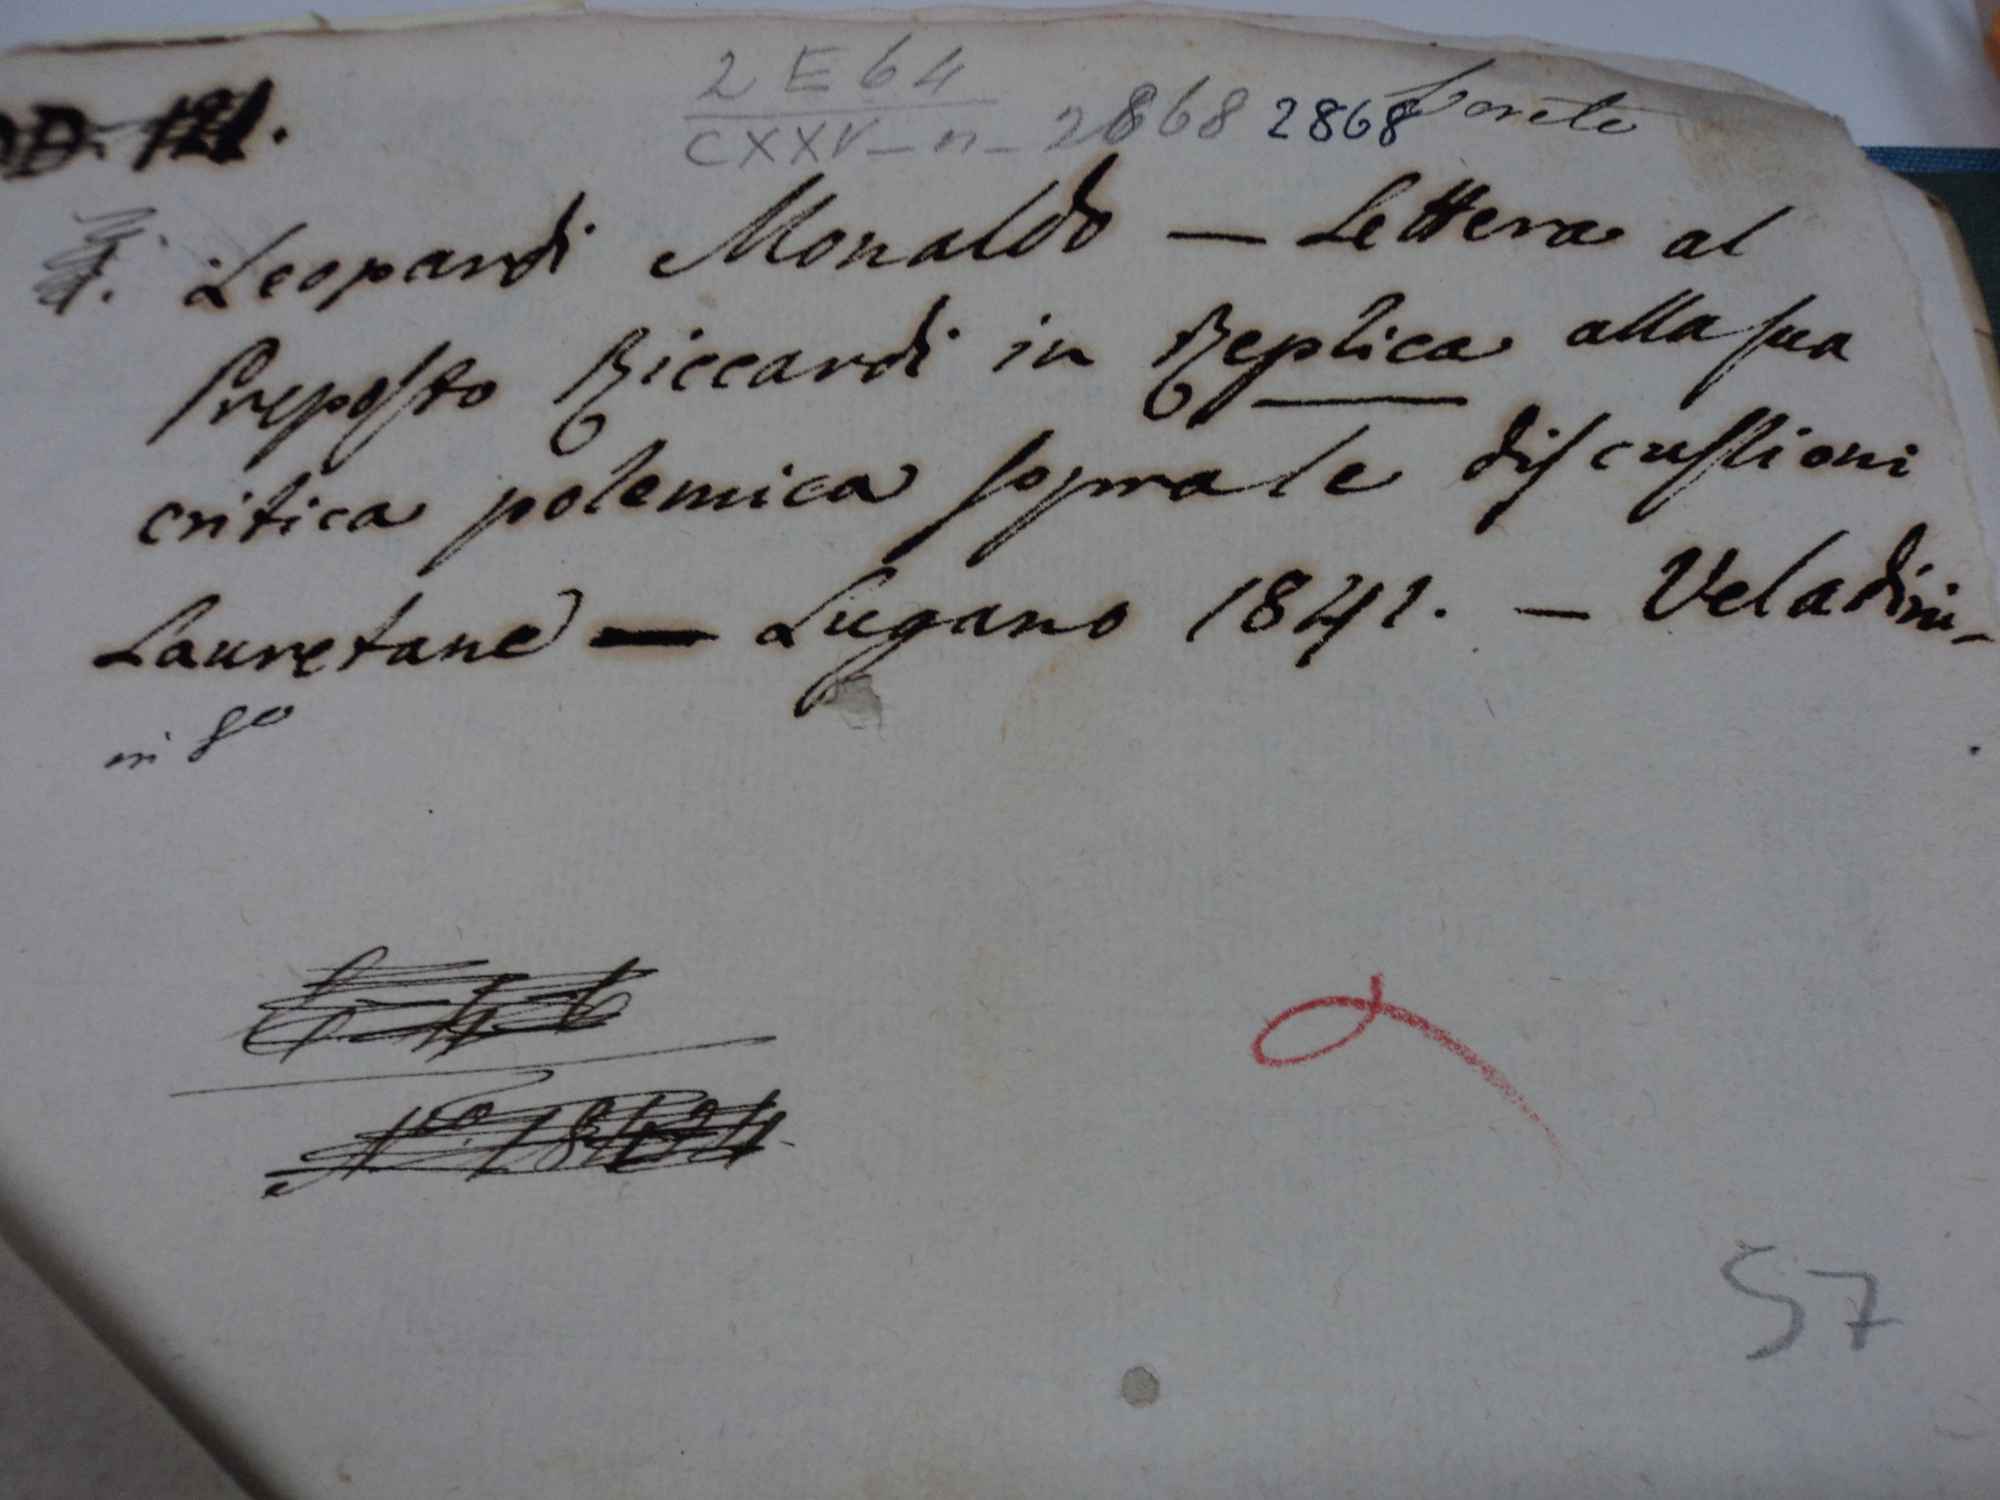 2 E 64
DD. 121.
CXXV - n - 2868 2868 Loreto
Leopardi Monaldo — Lettera al
Preposto Riccardi in Replica alla sua
critica polemica sopra le discussioni
Lauretane — Lugano 1841. — Veladini-
in 8º
57